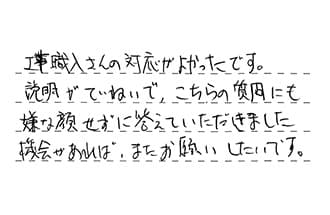 工事職人さんの対応がよかったです。
説明がていねいで、こちらの質問にも
嫌な顔せずに答えていただきました
機会があれば、またお願いしたいです。